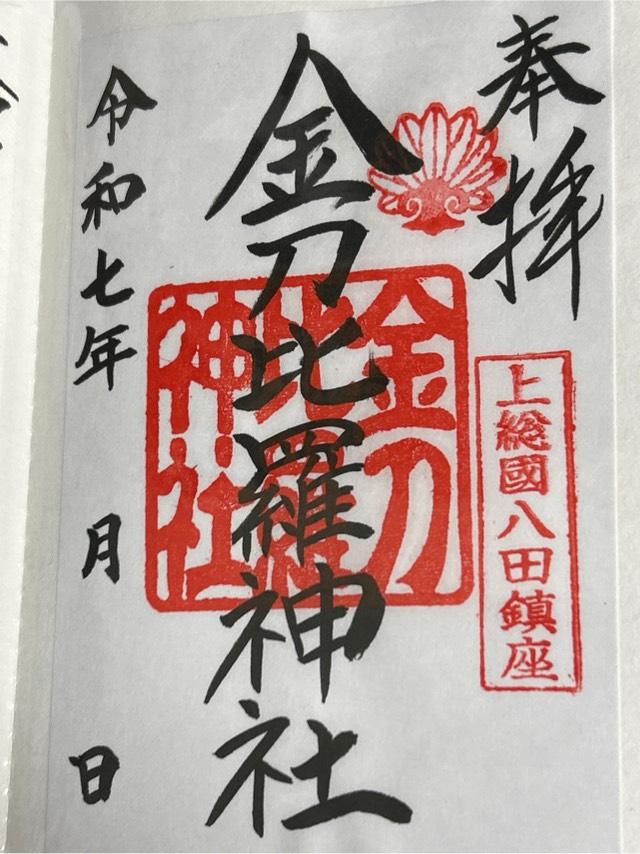 奉拝
上総國八田鎮座
金刀比羅神社
金刀比羅神社
令和七年 月 日